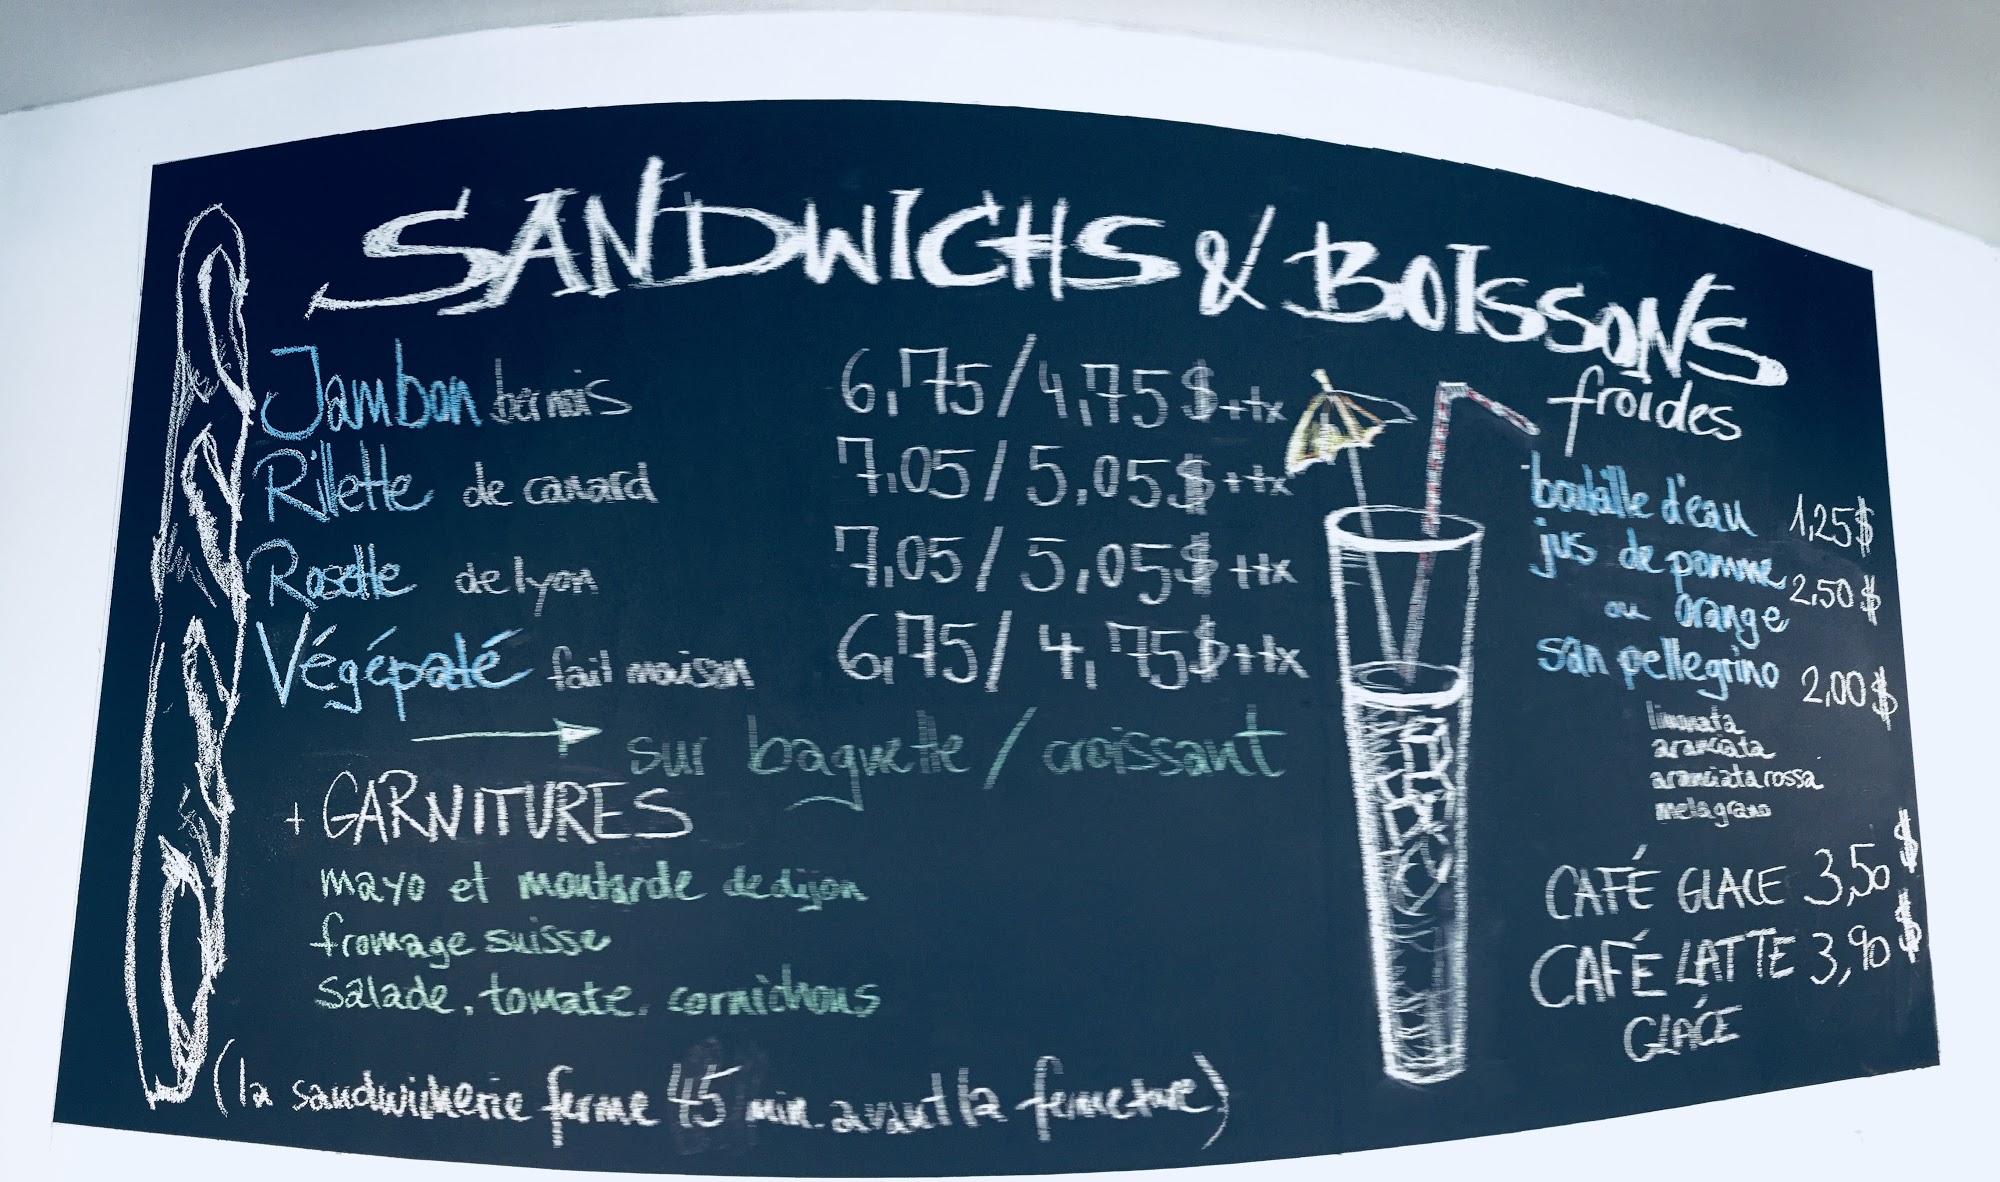 SANDWICHS & BOISSONS
froides
Jambon bernois 6,75 / 4,75$ + tx
Rillette de canard 7,05 / 5,05$ + tx
Rosette de lyon 7,05 / 5,05$ + tx
Végépaté fait maison 6,75 / 4,75$ + tx
sur baguette / croissant
+ GARNITURES
mayo et moutarde de dijon
fromage suisse
salade, tomate, cornichons
(la sandwicherie ferme 45 min. avant la fermeture)
bouteille d'eau 1,25$
jus de pomme 2,50$
ou orange
san pellegrino 2,00$
limonata
aranciata
aranciata rossa
melagrano
CAFÉ GLACE 3,50$
CAFÉ LATTE 3,90$
GLACÉ